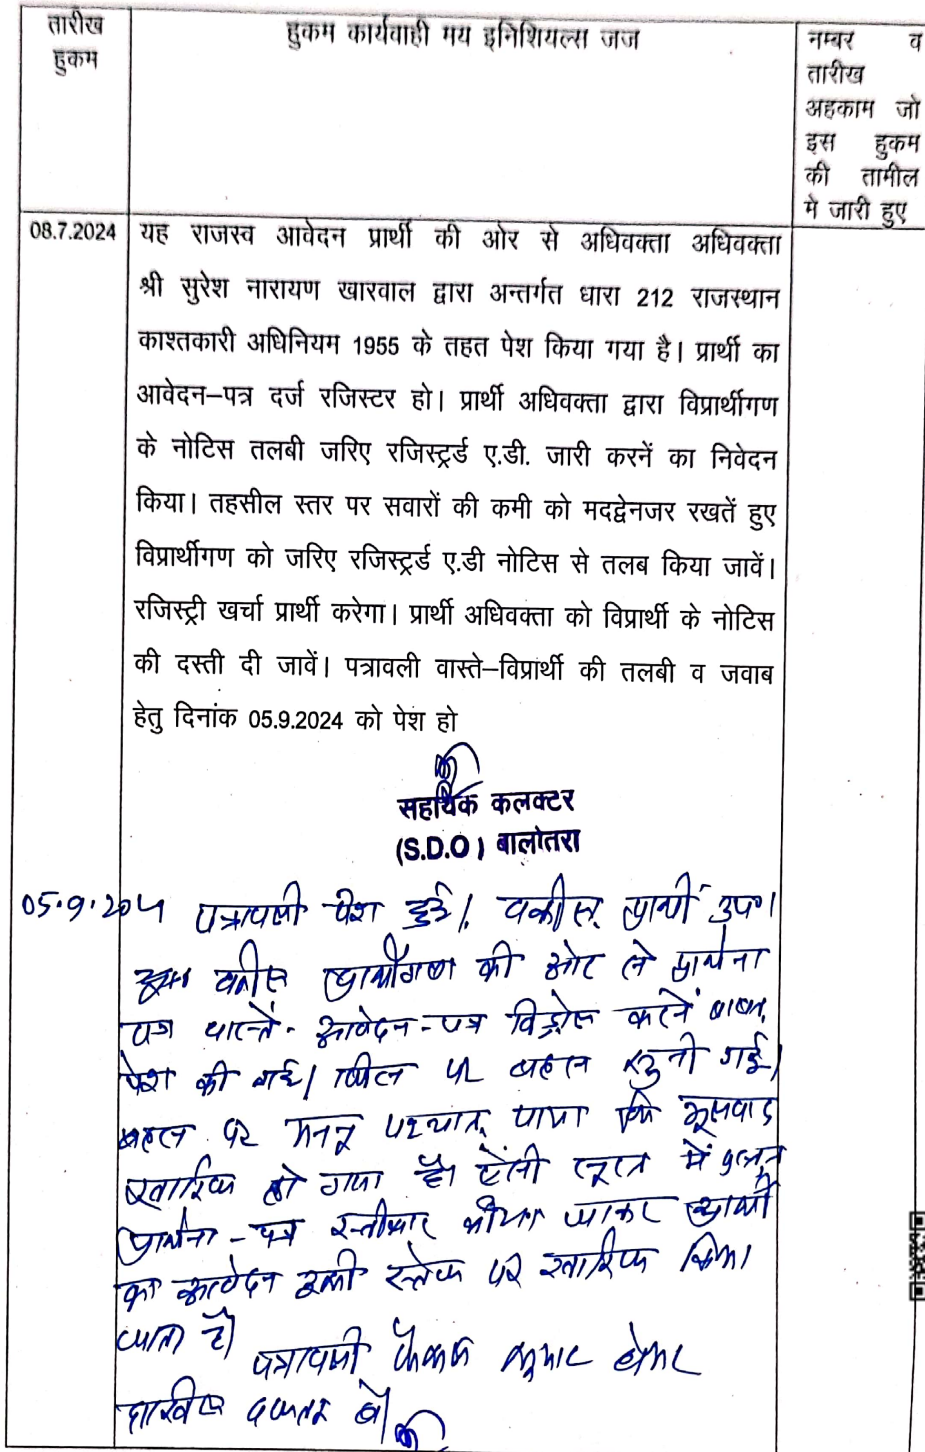 तारीख
हुकम
हुकम कार्यवाही मय इनिशियल्स जज
नम्बर व
तारीख
अहकाम जो
इस हुकम
की तामील
मे जारी हुए
08.7.2024
यह राजस्व आवेदन प्रार्थी की ओर से अधिवक्ता अधिवक्ता
श्री सुरेश नारायण खारवाल द्वारा अन्तर्गत धारा 212 राजस्थान
काश्तकारी अधिनियम 1955 के तहत पेश किया गया है। प्रार्थी का
आवेदन–पत्र दर्ज रजिस्टर हो। प्रार्थी अधिवक्ता द्वारा विप्रार्थीगण
के नोटिस तलबी जरिए रजिस्ट्रर्ड ए.डी. जारी करनें का निवेदन
किया। तहसील स्तर पर सवारों की कमी को मदद्वेनजर रखतें हुए
विप्रार्थीगण को जरिए रजिस्ट्रर्ड ए.डी नोटिस से तलब किया जावें।
रजिस्ट्री खर्चा प्रार्थी करेगा। प्रार्थी अधिवक्ता को विप्रार्थी के नोटिस
की दस्ती दी जावें। पत्रावली वास्ते–विप्रार्थी की तलबी व जवाब
हेतु दिनांक 05.9.2024 को पेश हो
कलक्टर
(S.D.O) बालोतरा
05.9.2024 पत्रावली पेश हुई। वकील प्रार्थी उप।
वकील प्रार्थीगण की ओर से प्रार्थना
पत्र वास्ते- आवेदन-पत्र विड्रोल करने बाबत्
पेश की गई। पर बहस सुनी गई।
बहस पर मनन् पश्चात् पाया कि मूलवाद
खारिज हो गया है। ऐसी सूरत में
प्रार्थना-पत्र स्वीकार किया जाकर प्रार्थी
का आवेदन इसी स्टेज पर खारिज किया
जाता है।
पत्रावली फैसल शुमार होकर
दाखिल दफ्तर हो।